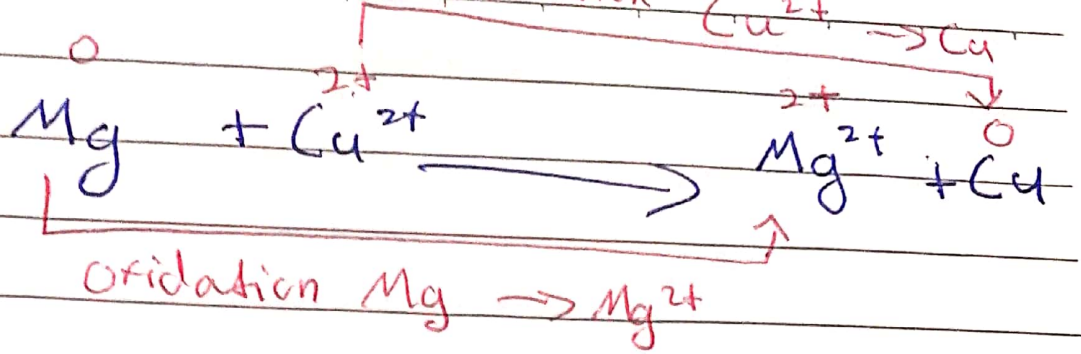 Cu²⁺ → Cu
0 2+ 2+ 0
Mg + Cu²⁺ → Mg²⁺ + Cu
oxidation Mg → Mg²⁺